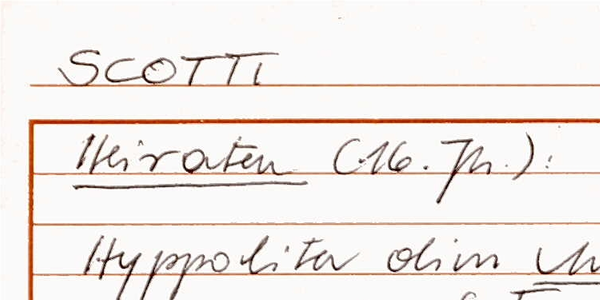 SCOTTI
Heiraten (16. Jh.):
Hyppolita olim